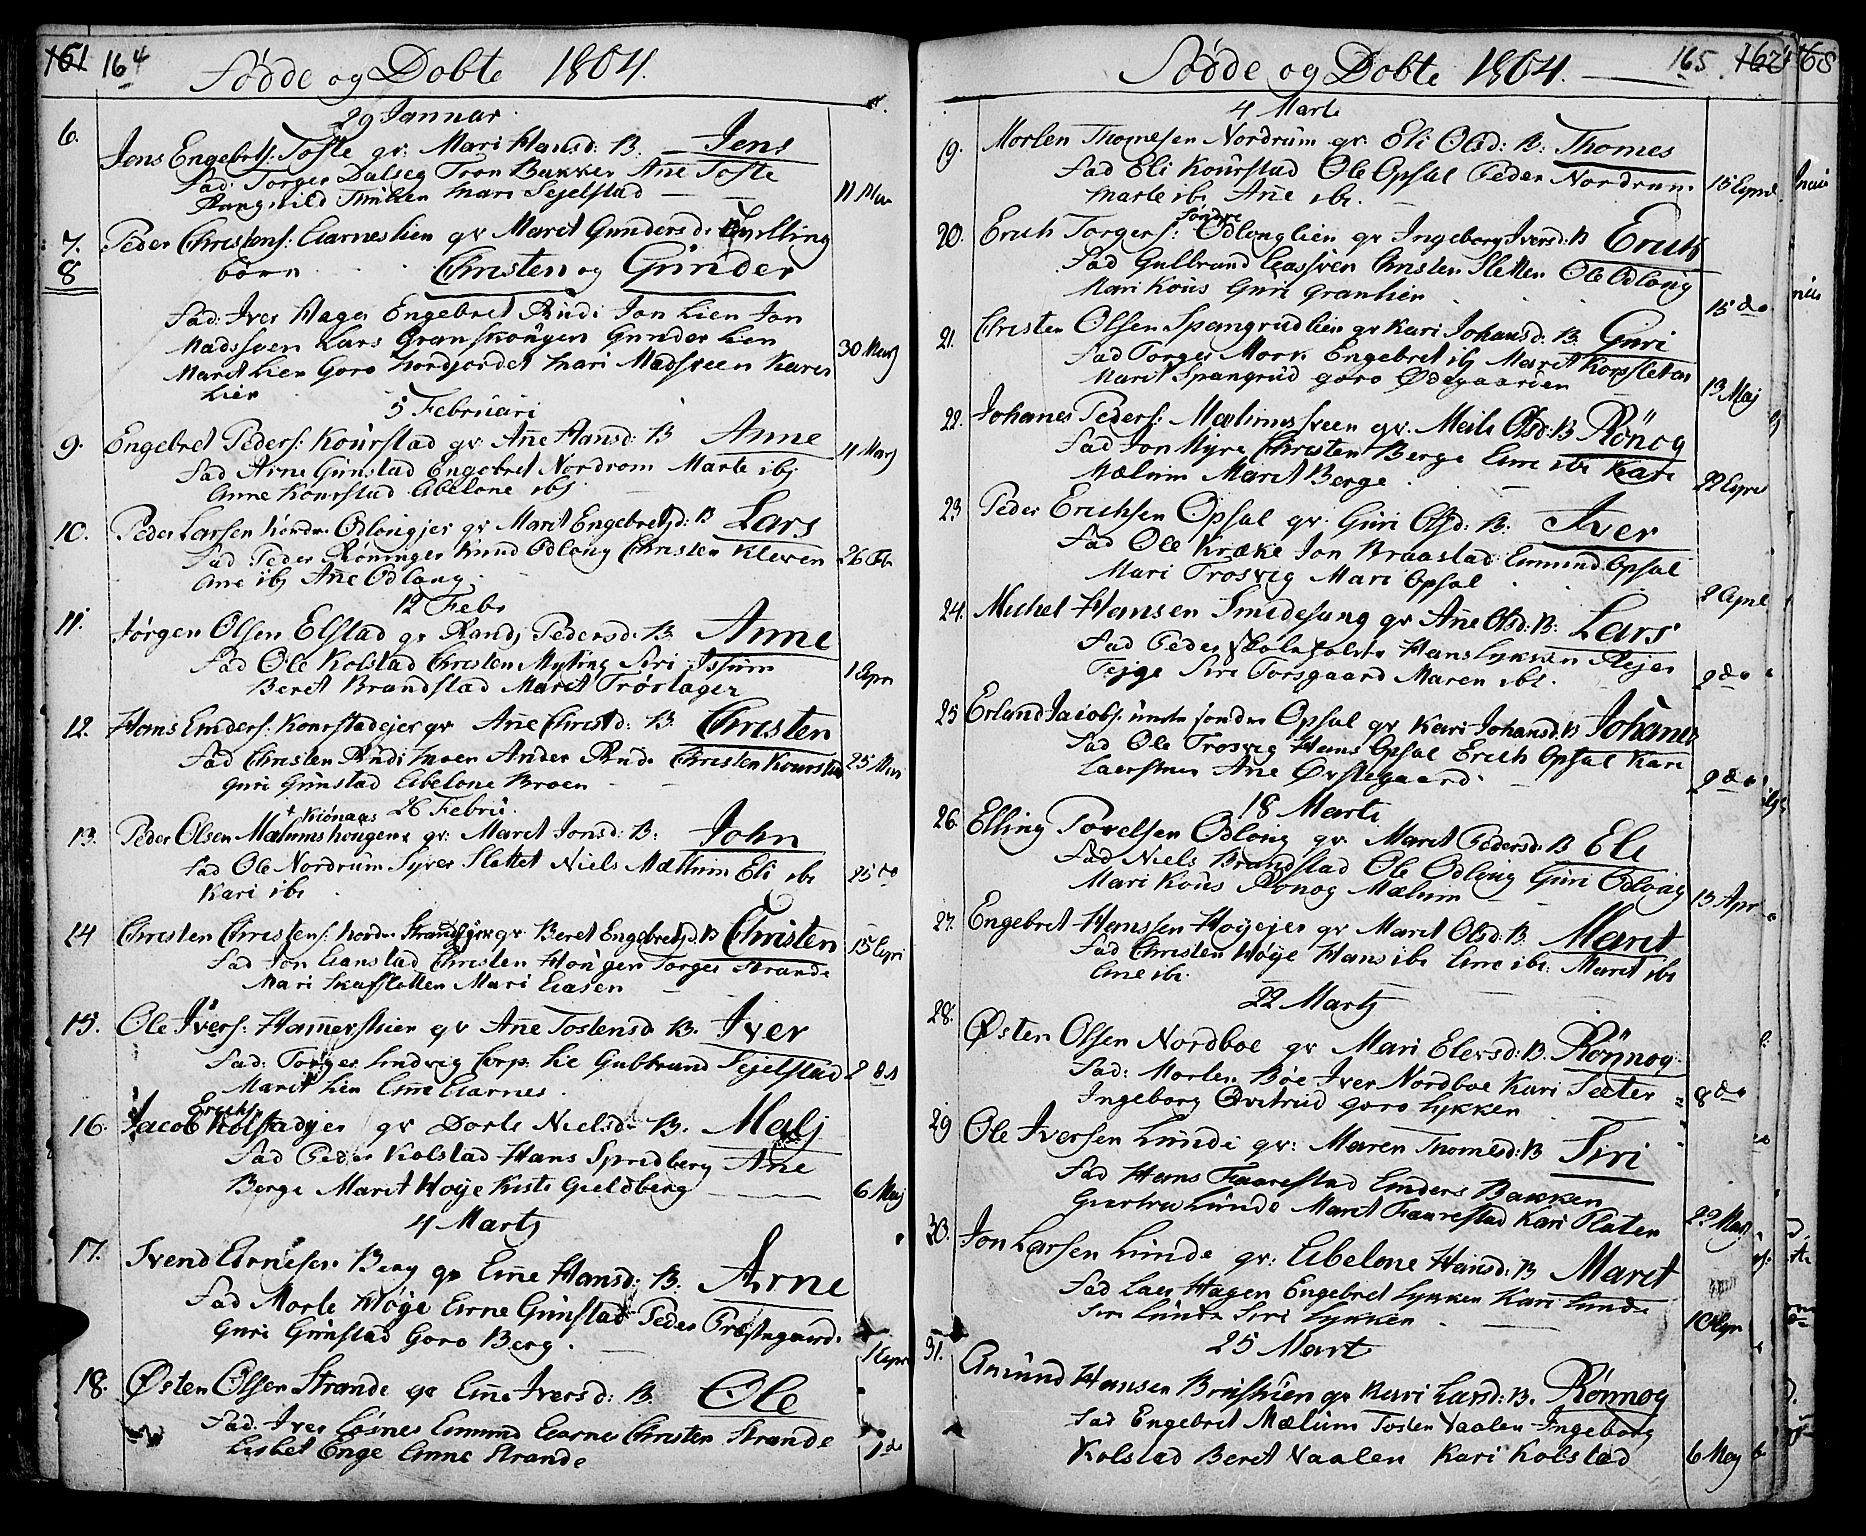 161 164 Fødde og Døbte 1804.
29 Januar.
6. Jens Engebrets: Tofte gr: Mari Hansd: B. Jens
Fad: Torger Dalseg Tron Bakken Ane Tofte
Rangnild Mari Sejelstad 11 Mar
7. Peder Christens: Aarneslien gr Marit Gundersd: Tvilling
8 børn Christen og Gunder
Fad: Iver Hage Engebret Rudi Jon Lien Jon
Madssven Lars Granskougen Gunder Lien
Marit Lien Goro Nordjordet Mari Madsveen Karen 30 Marj
Lien
5 Februari
9. Engebret Peders: Kourstad gr Ane Hansd: B Anne 4 Marj
Fad Arne Gunstad Engebret Nordrom Marte ibj
Anne Kourstad Abelone ibj
10. Peder Larsen Nordre Odlougjer gr Marit Engebretsd: B Lars
Fad Peder Roninger Knud Odloug Christen Kleven 26 Feb
Ane ibj Ane Odloug
12 Febr
11. Jørgen Olsen Elstad gr Randj Pedersd: B Anne
Fad Ole Kolstad Christen Myting Siri Issum
Beret Brandstad Marit Trøstager 1 Apri
12. Hans Enders: Kourstadejer gr Ane Christd: B. Christen
Fad Christen Rudi moen Ander Rudi Christen Kourstad 25 Mar
Guri Gunstad Abelone Broen
26 Febru.
Kiønaas
13. Peder Olsen Mælumshougen gr: Marit Jonsd: B: John
Fad Ole Nordrum Syver Slettet Niels Mællum Eli ibi 25 do
Kari ibi
14 Christen Christens: Nordre Strandejer gr: Beret Engebretsd: B Christen 15 Apri
Fad Jon Aanstad Christen Hougen Torger Strande
Mari Skafsletten Mari Aasen
15. Ole Ivers: Hamershien gr Ane Tostensd B. Iver
Fad: Torger Lindvig Corp. Lie Gulbrand Sejelstad 2 do
Marit Lien Ane Aarnes
Erichs
16. Jacob Kolstadejer gr Dorte Nielsd: B. Malj
Fad Peder Kolstad Hans Spredberg Ane
Berge Marit Høye Kisti Gieldberg 6 Maj
4 Martj
17. Svend Arnesen Berg gr Ane Hansd: B. Arne
Fad Morte Høye Arne Gunstad Peder Præstegaard.
Guri Gunstad Goro Berg. 1 Apri
18. Østen Olsen Strande gr Ane Iversd: B. Ole
Fad: Iver Losnes Amund Aarnes Christen Strande
Lisbet Enge Anne Strande 1 do
Fødde og Døbte 1804. 165 162 168
4 Marti
19. Morten Thomesen Nordrum gr. Eli Olsd: B: Thomes
Fad Eli Kourstad Ole Opsal Peder Nordrum 15 Apriil
Marte ibi Ane ibi.
Søndre
20. Erich Torgers: Odlouglien gr Ingeborg Iversd: B Erich
Fad Gulbrand Aassven Christen Sletten Ole Odloug
Mari Kous Guri Granlien 15 do
21. Christen Olsen Spangrudlien gr Kari Johansd: B. Guri
Fad Torger Mork Engebret ibj Marit Korssleten
Marit Spangrud Goro Ødegaarden 13 Maj
22. Johanes Peders: Mælumssveen gr. Olsd: B Rönog
Fad Jon Myre Christen Berge Ane ibi Kari
Mælum Marit Berge 22 Apri
23 Peder Erichsen Opsal gr. Guri Olsd: B: Iver
Fad Ole Kræke Jon Braastad Emmund Opsal
Mari Trosvig Mari Opsal 2 Apriil
24. Michel Hansen Smidesung gr Ane Olsd: B: Lars
Fad Peder Hans Lykken Rejer
Tejge Siri Torsgaard Maren ibi. 2 do
25 Erland Jacobs: søndre Opsal gr Kari Johansd: B Johanes
Fad Ole Trosvig Hans Opsal Erich Opsal Kari
Ane Øvstegaard 2 do
18 Marti
26. Elling Povelsen Odloug gr. Marit Pedersd: B Eli
Fad Niels Brandstad Ole Odloug Guri Odloug
Mari Kous Ronog Mælum 15 Apr
27. Engebret Hanssen Høyejer gr Marit Olsd: B. Marit
Fad Christen Høye Hans ibi Ane ibi: Marit ibi
Ane ibi.
22 Martj
28. Østen Olsen Nordboe gr Mari Elersd: B. Rönnog
Fad: Morten Bøe Iver Nordboe Kari Sæter
Ingeborg Qvitrud Goro Lykken 8 do
29 Ole Iversen Lunde gr: Maren Thomesd: B Siri
Fad Hans Faarestad Anders Bakken
Lunde Marit Faarestad Kari Platen 22 Maj
30. Jon Larsen Lunde gr: Abelone Hansd: B Marit
Fad Hagen Engebret Lykken Kari Lunde
Siri Lunde Siri Lykken 10 Apr
25 Mart
31. Amund Hansen gr Kari Larsd: B. Rönnog
Fad Engebret Mælum Tosten Vaalen Ingeborg
Kolstad Beret Vaalen Kari Kolstad 6 Maj